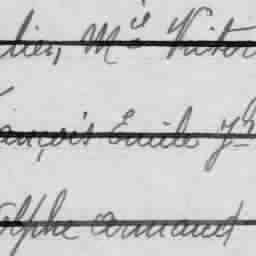 lier, Mie Victor
ançois Emile Jh
olphe Armand